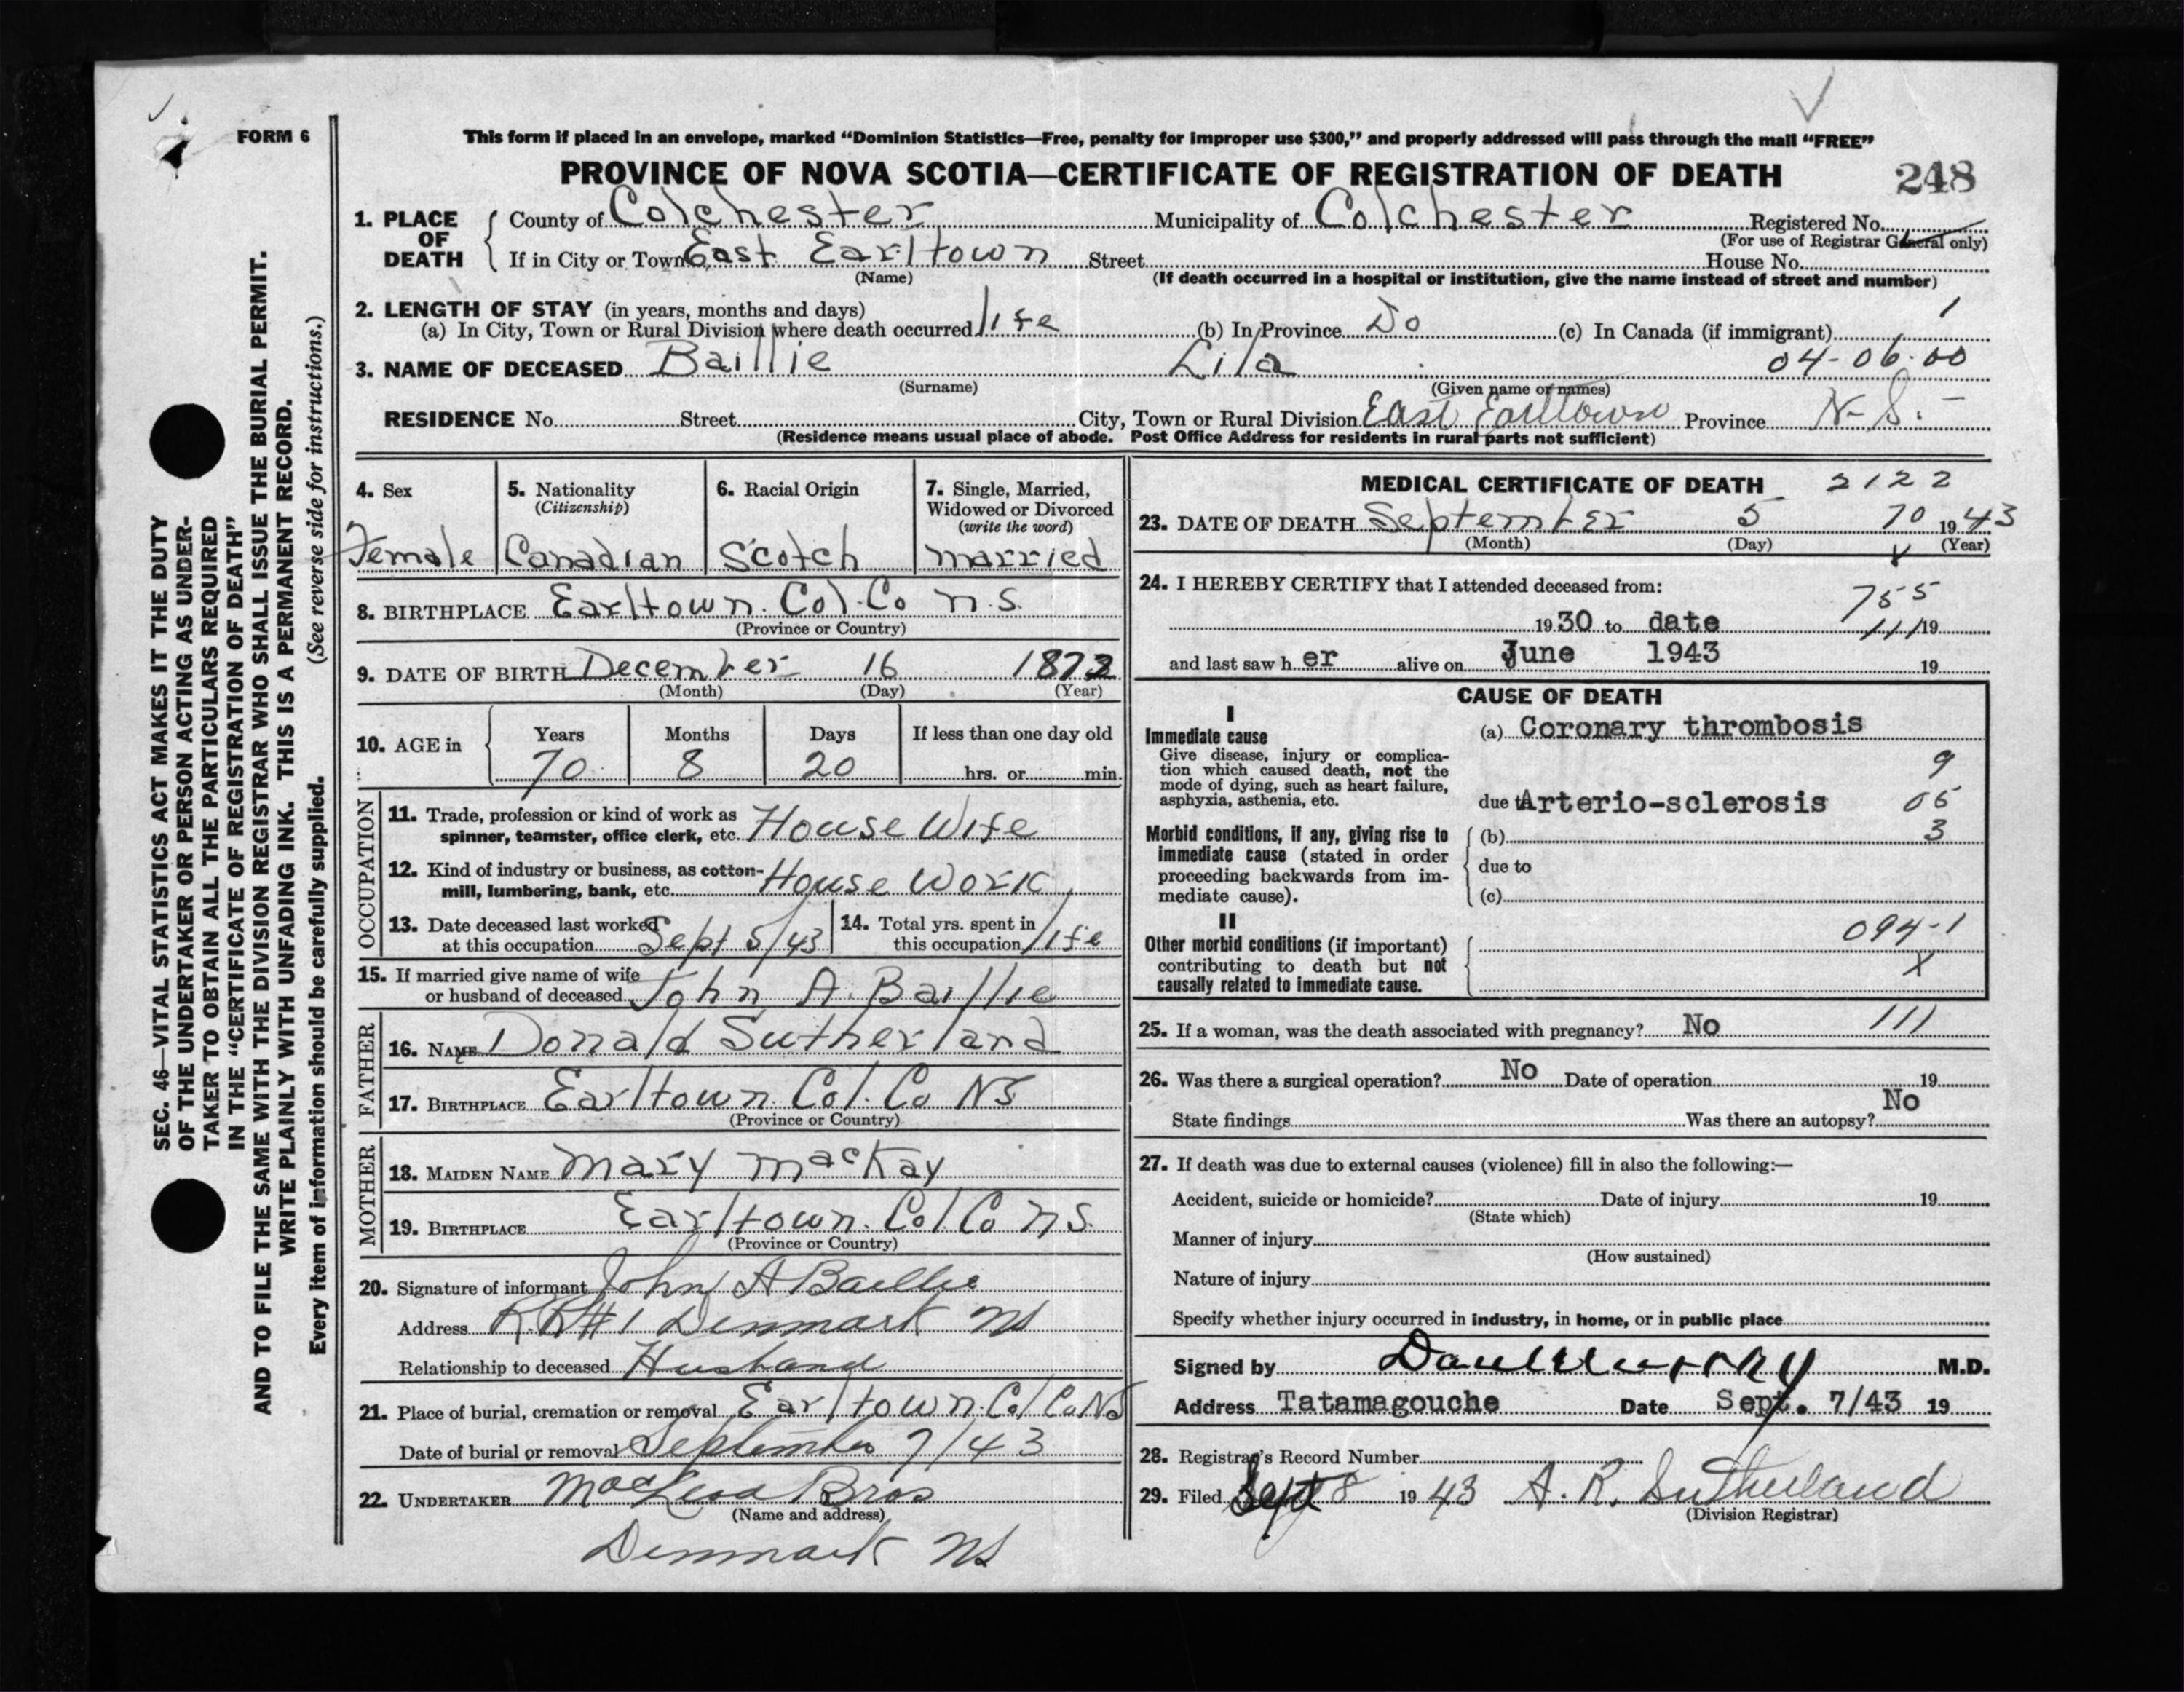 FORM 6
This form if placed in an envelope, marked “Dominion Statistics—Free, penalty for improper use $300,” and properly addressed will pass through the mail “FREE”
PROVINCE OF NOVA SCOTIA—CERTIFICATE OF REGISTRATION OF DEATH 248
1. PLACE OF DEATH County of Colchester Municipality of Colchester Registered No.
(For use of Registrar General only)
If in City or Town East Earltown Street House No.
(Name) (If death occurred in a hospital or institution, give the name instead of street and number)
2. LENGTH OF STAY (in years, months and days) 1
(a) In City, Town or Rural Division where death occurred life (b) In Province Do (c) In Canada (if immigrant)
3. NAME OF DECEASED Baillie Lila 04-06-00
(Surname) (Given name or names)
RESIDENCE No. Street City, Town or Rural Division East Earltown Province N.S.
(Residence means usual place of abode. Post Office Address for residents in rural parts not sufficient)
SEC. 46—VITAL STATISTICS ACT MAKES IT THE DUTY
OF THE UNDERTAKER OR PERSON ACTING AS UNDER-
TAKER TO OBTAIN ALL THE PARTICULARS REQUIRED
IN THE “CERTIFICATE OF REGISTRATION OF DEATH”
AND TO FILE THE SAME WITH THE DIVISION REGISTRAR WHO SHALL ISSUE THE BURIAL PERMIT.
WRITE PLAINLY WITH UNFADING INK. THIS IS A PERMANENT RECORD.
Every item of information should be carefully supplied. (See reverse side for instructions.)
4. Sex Female
5. Nationality (Citizenship) Canadian
6. Racial Origin Scotch
7. Single, Married, Widowed or Divorced (write the word) married
8. BIRTHPLACE Earltown. Col. Co n.s.
(Province or Country)
9. DATE OF BIRTH December 16 1872
(Month) (Day) (Year)
10. AGE in Years Months Days If less than one day old
70 8 20 hrs. or min.
OCCUPATION
11. Trade, profession or kind of work as
spinner, teamster, office clerk, etc. House Wife
12. Kind of industry or business, as cotton-
mill, lumbering, bank, etc. House Work
13. Date deceased last worked
at this occupation Sept 5/43
14. Total yrs. spent in
this occupation life
15. If married give name of wife
or husband of deceased John A. Baillie
FATHER
16. NAME Donald Sutherland
17. BIRTHPLACE Earltown. Col. Co NS
(Province or Country)
MOTHER
18. MAIDEN NAME Mary MacKay
19. BIRTHPLACE Earltown. Col. Co NS.
(Province or Country)
20. Signature of informant John A Baillie
Address R.R#1 Denmark NS
Relationship to deceased Husband
21. Place of burial, cremation or removal Earltown. Col Co NS
Date of burial or removal September 7/43
22. UNDERTAKER Bros
(Name and address)
Denmark NS
MEDICAL CERTIFICATE OF DEATH 2122
23. DATE OF DEATH September 5 70 1943
(Month) (Day) (Year)
24. I HEREBY CERTIFY that I attended deceased from:
755
1930 to date 111 19
and last saw her alive on June 1943 19
CAUSE OF DEATH
I
Immediate cause (a) Coronary thrombosis
Give disease, injury or complica-
tion which caused death, not the 9
mode of dying, such as heart failure,
asphyxia, asthenia, etc. due to Arterio-sclerosis 05
Morbid conditions, if any, giving rise to (b) 3
immediate cause (stated in order
proceeding backwards from im- due to
mediate cause). (c)
II
Other morbid conditions (if important) 094-1
contributing to death but not X
causally related to immediate cause.
25. If a woman, was the death associated with pregnancy? No 111
26. Was there a surgical operation? No Date of operation 19
State findings Was there an autopsy? No
27. If death was due to external causes (violence) fill in also the following:—
Accident, suicide or homicide? Date of injury 19
(State which)
Manner of injury
(How sustained)
Nature of injury
Specify whether injury occurred in industry, in home, or in public place
Signed by M.D.
Address Tatamagouche Date Sept. 7/43 19
28. Registrar's Record Number
29. Filed Sept 8 1943 A. R. Sutherland
(Division Registrar)